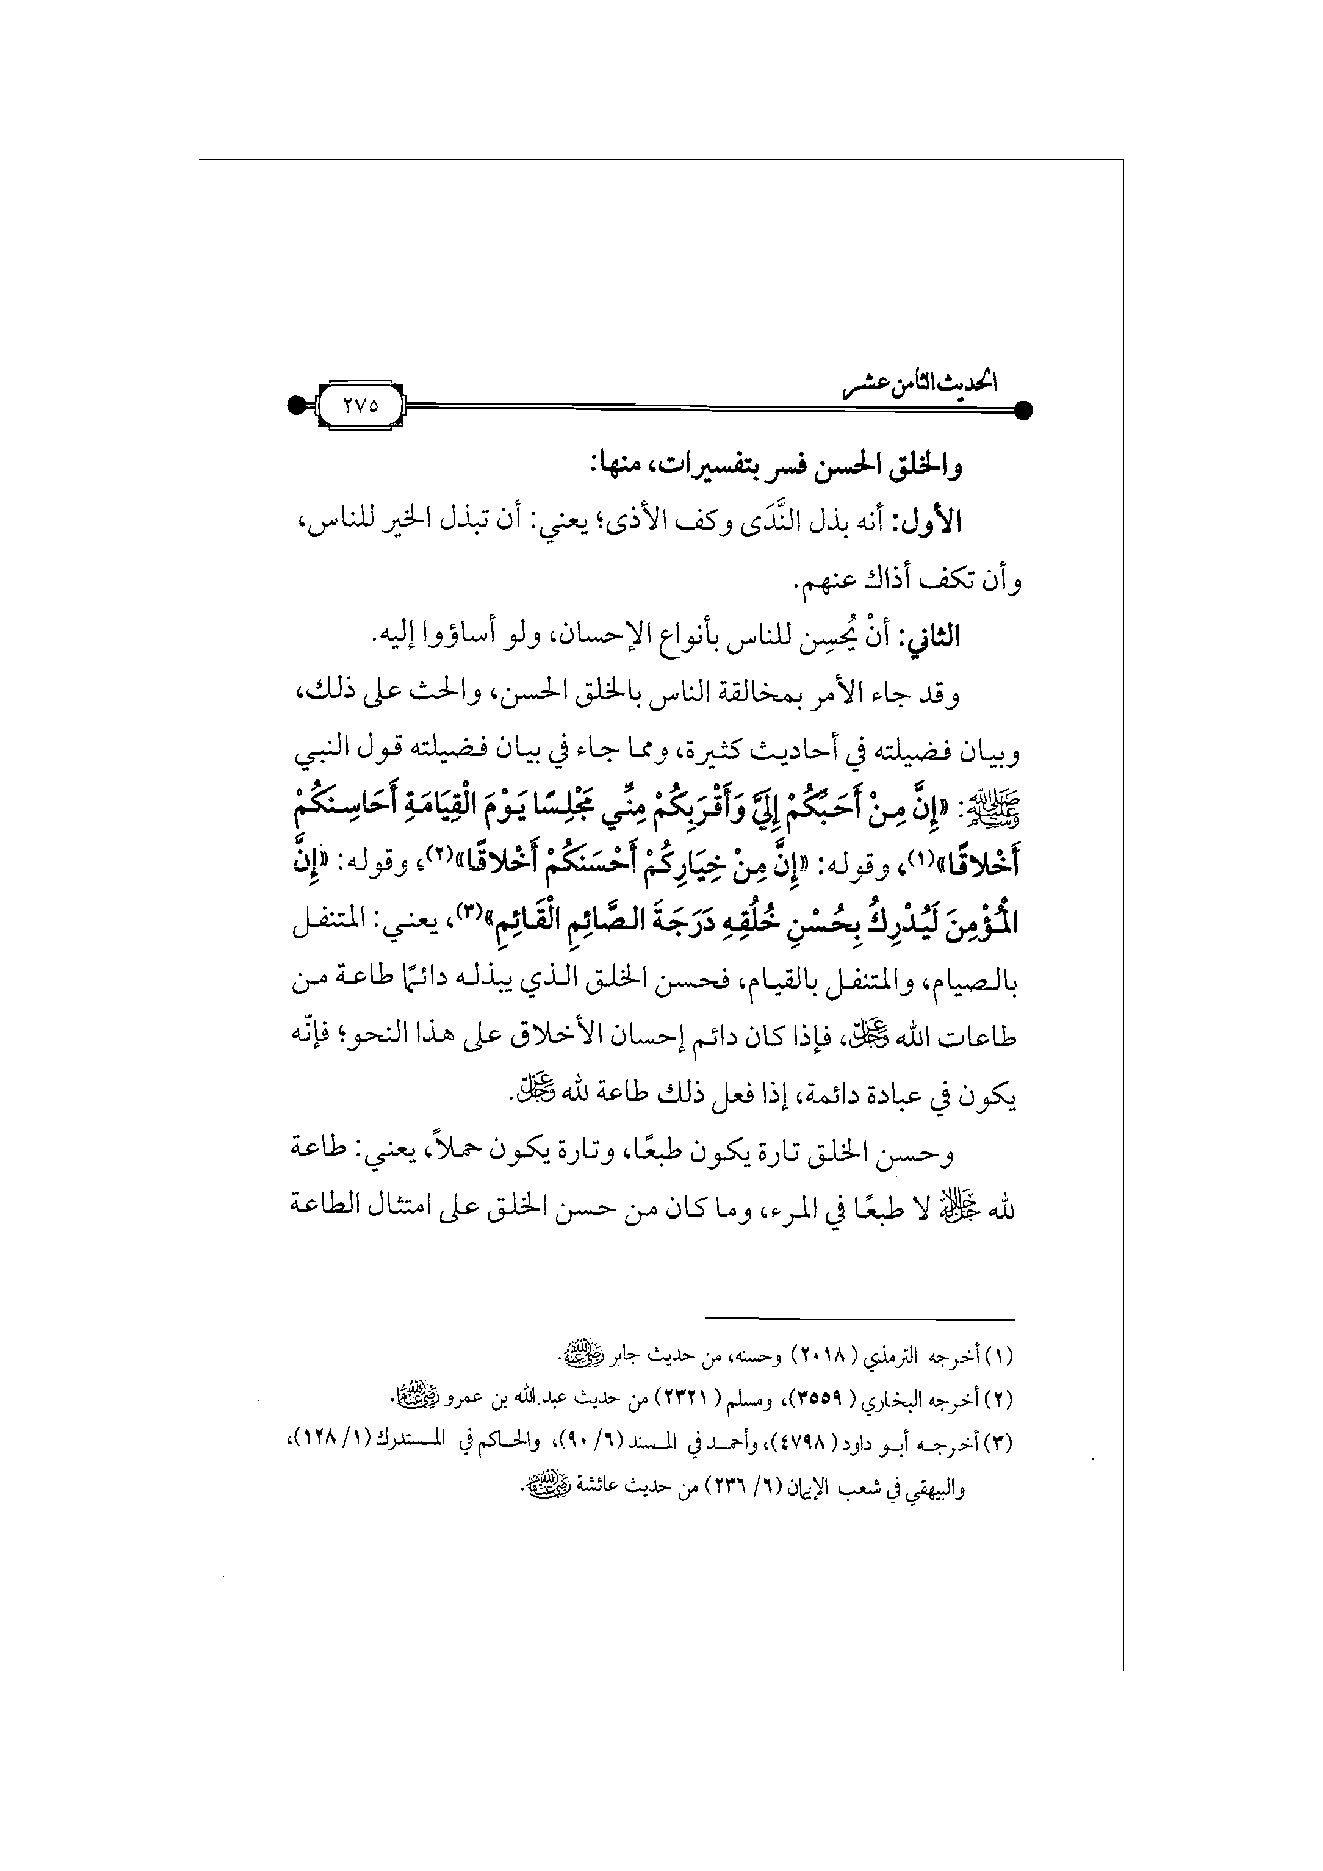 الحديث الثامن عشر
٢٧٥
والخلق الحسن فسر بتفسيرات، منها:
الأول: أنه بذل النَّدَى وكف الأذى؛ يعني: أن تبذل الخير للناس،
وأن تكف أذاك عنهم.
الثاني: أنْ يُحسِن للناس بأنواع الإحسان، ولو أساؤوا إليه.
وقد جاء الأمر بمخالقة الناس بالخلق الحسن، والحث على ذلك،
وبيان فضيلته في أحاديث كثيرة، ومما جاء في بيان فضيلته قول النبي
ﷺ: «إِنَّ مِنْ أَحَبِّكُمْ إِلَيَّ وَأَقْرَبِكُمْ مِنِّي مَجْلِسًا يَوْمَ الْقِيَامَةِ أَحَاسِنَكُمْ
أَخْلاقًا»(١)، وقوله: «إِنَّ مِنْ خِيَارِكُمْ أَحْسَنَكُمْ أَخْلاقًا»(٢)، وقوله: «إِنَّ
الْمُؤْمِنَ لَيُدْرِكُ بِحُسْنِ خُلُقِهِ دَرَجَةَ الصَّائِمِ الْقَائِمِ»(٣)، يعني: المتنفل
بالصيام، والمتنفل بالقيام، فحسن الخلق الذي يبذله دائمًا طاعة من
طاعات الله عز وجل، فإذا كان دائم إحسان الأخلاق على هذا النحو؛ فإنّه
يكون في عبادة دائمة، إذا فعل ذلك طاعة لله عز وجل.
وحسن الخلق تارة يكون طبعًا، وتارة يكون حملاً، يعني: طاعة
لله ﷻ لا طبعًا في المرء، وما كان من حسن الخلق على امتثال الطاعة
(١) أخرجه الترمذي (٢٠١٨) وحسنه، من حديث جابر رضي الله عنه.
(٢) أخرجه البخاري (٣٥٥٩)، ومسلم (٢٣٢١) من حديث عبد الله بن عمرو رضي الله عنهما.
(٣) أخرجه أبو داود (٤٧٩٨)، وأحمد في المسند (٦/ ٩٠)، والحاكم في المستدرك (١/ ١٢٨)،
والبيهقي في شعب الإيمان (٦/ ٢٣٦) من حديث عائشة رضي الله عنها.